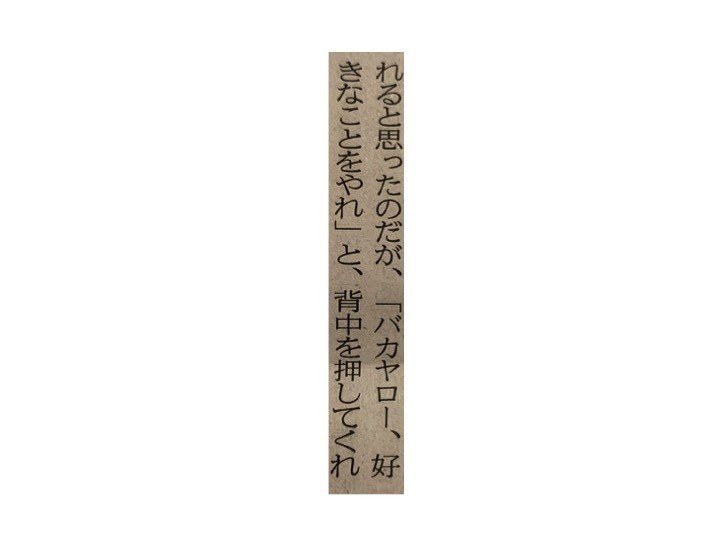 れると思ったのだが、「バカヤロー、好
きなことをやれ」と、背中を押してくれ